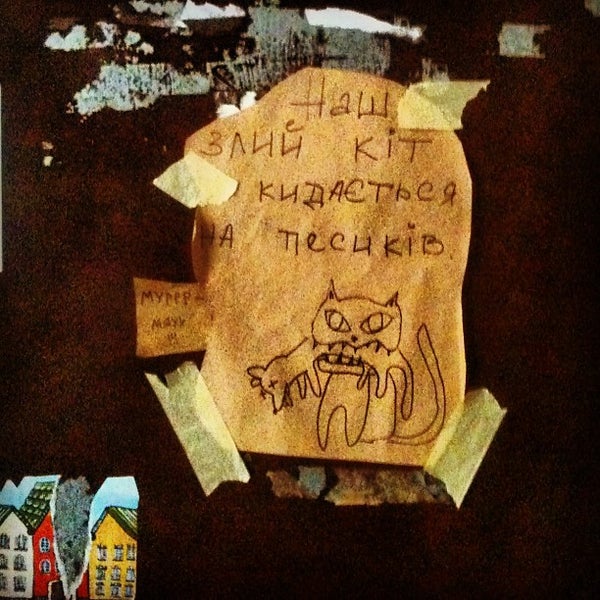 Наш
злий кіт
кидається
на песиків.
МУРРР-
МЯУУ
!!!